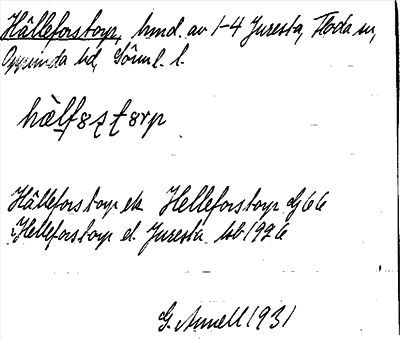 Hälleforstorp, hmd. av 1-4 Juresta, Floda sn,
Oppunda hd, Söml. l.
hälfo̤ʂʈorp
Hälleforstorp ek Helleforstorp Gj 66
Helleforstorp el. Juresta Jsb 1926
G. Annell 1931